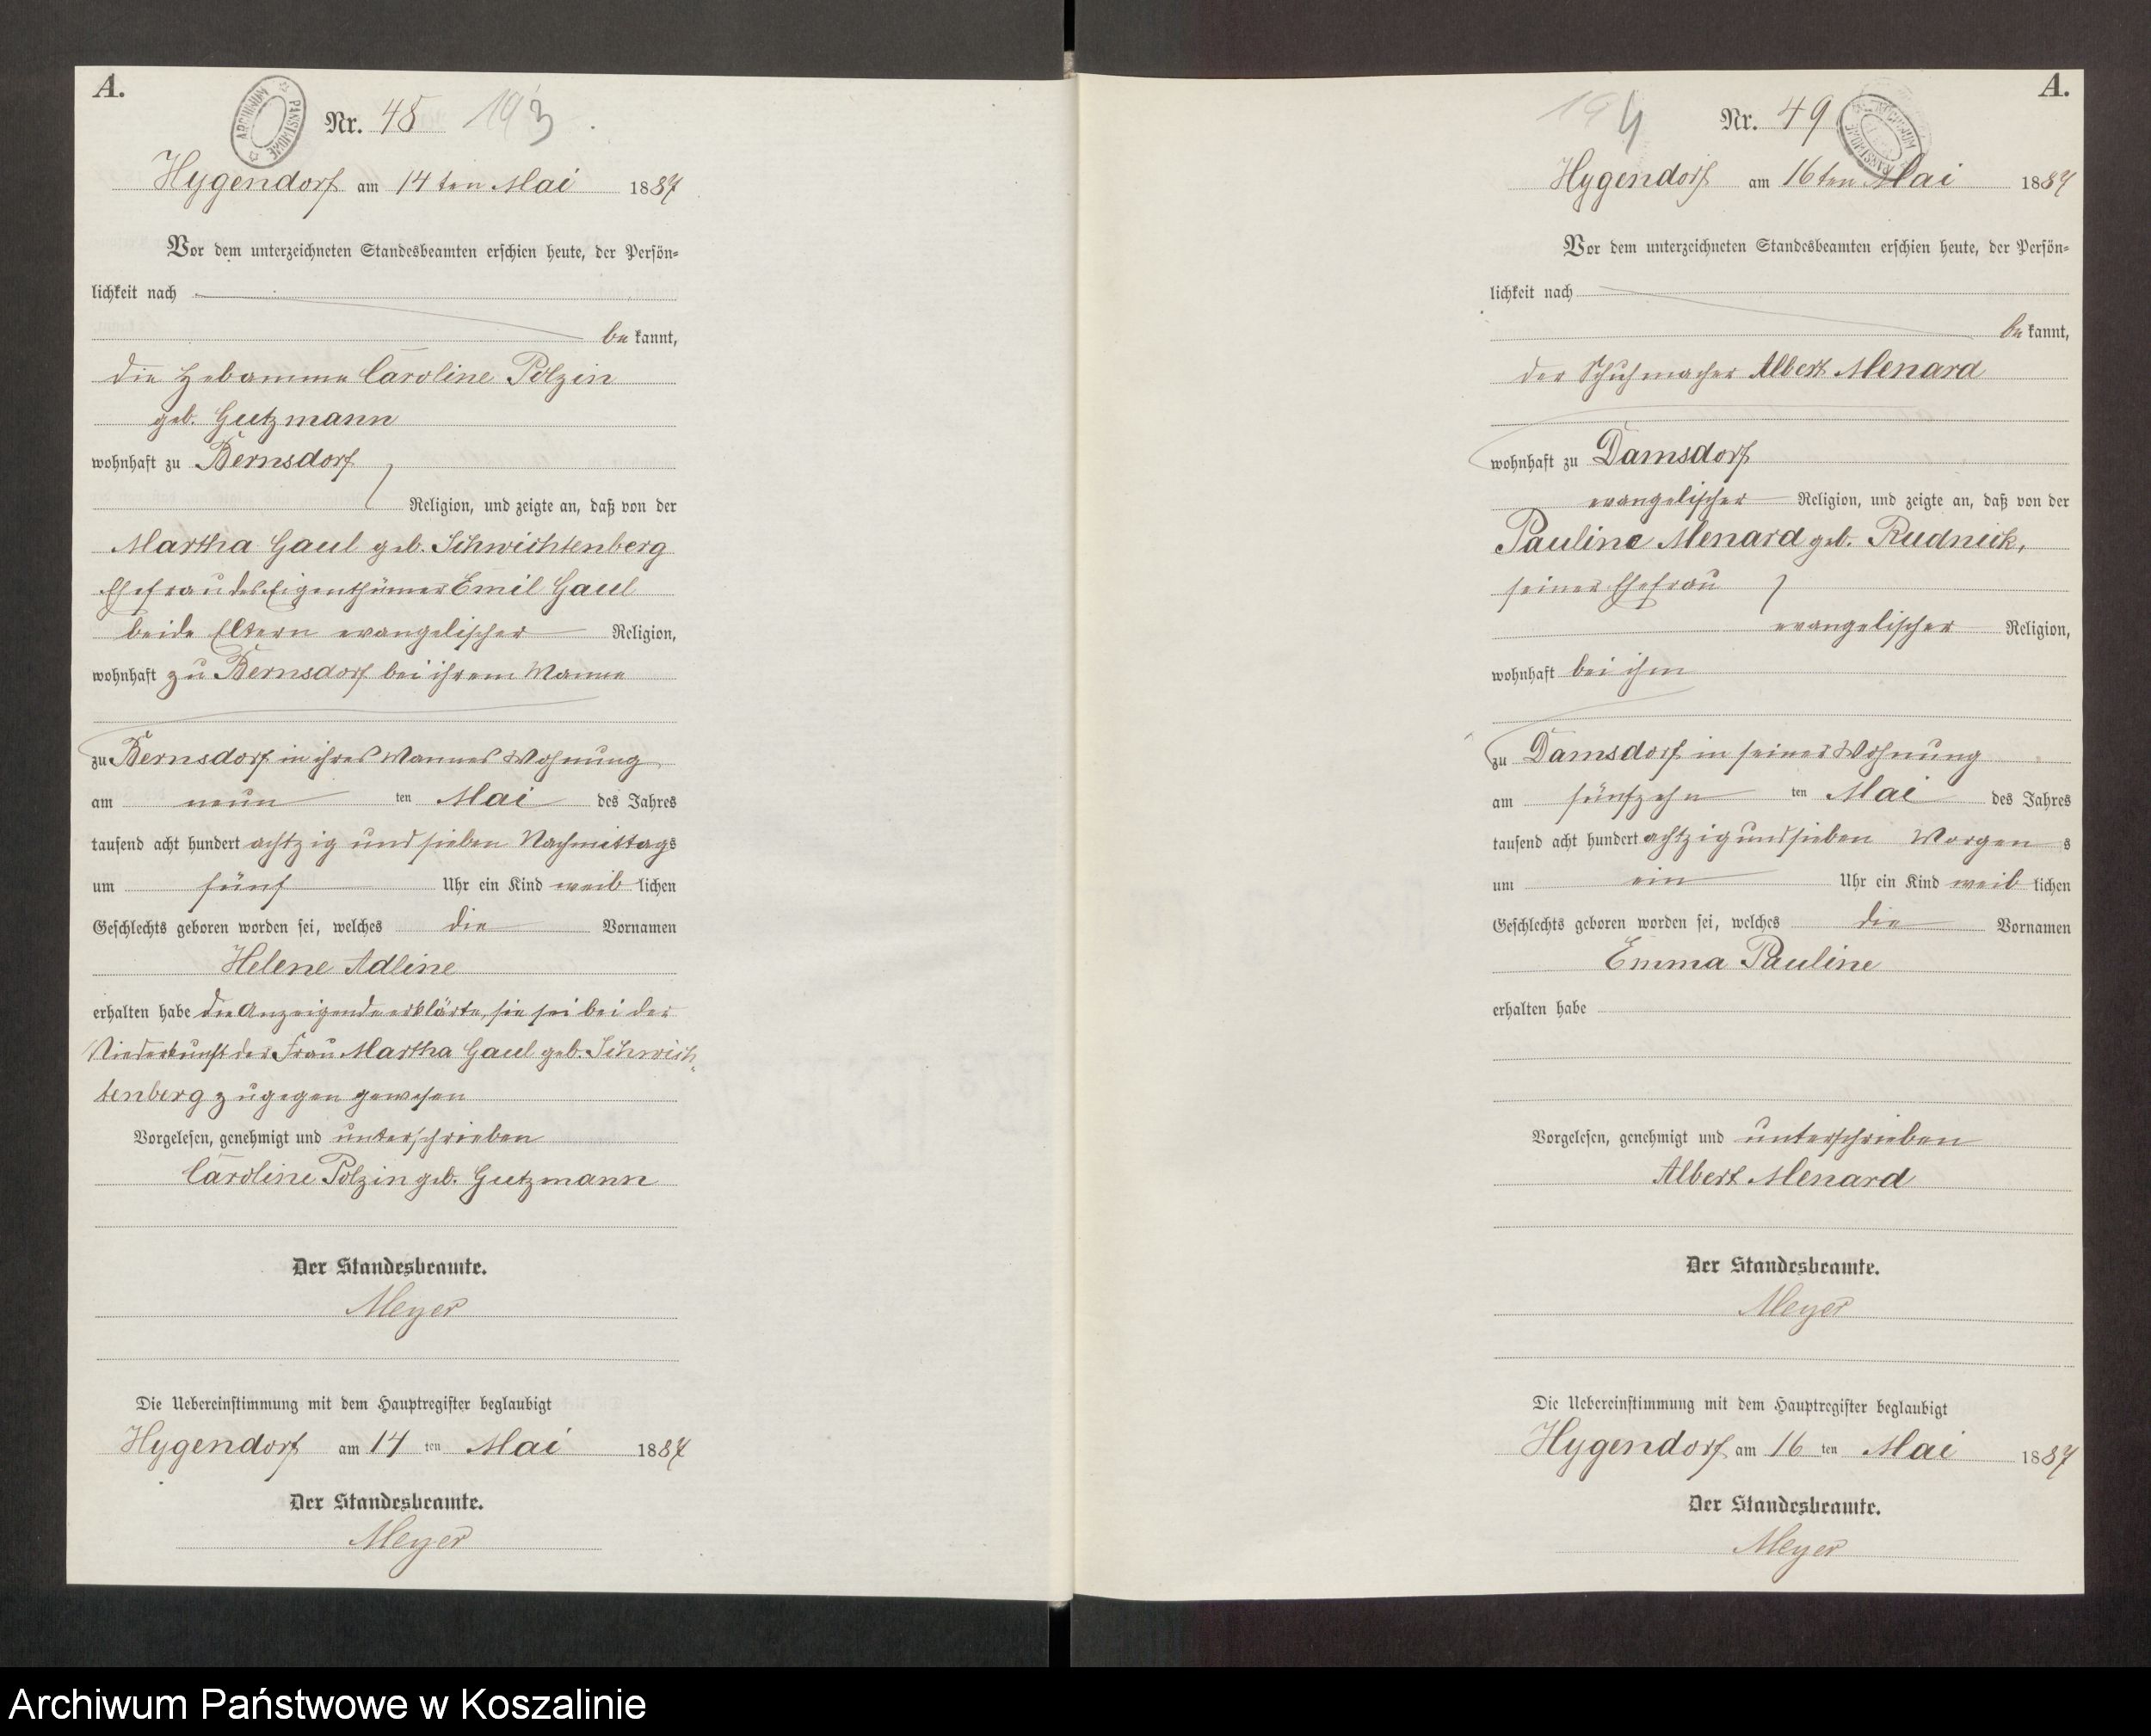 A.
ARCHIWUM PAŃSTWOWE
Nr. 48 193
Hygendorf am 14 ten Mai 1887
Vor dem unterzeichneten Standesbeamten erschien heute, der Persön-
lichkeit nach
be kannt,
die Hebamme Caroline Polzin
geb. Gutzmann
wohnhaft zu Bernsdorf
Religion, und zeigte an, daß von der
Martha Gaul geb. Schwichtenberg
Ehefrau des Eigenthümer Emil Gaul
beide Eltern evangelischer Religion,
wohnhaft zu Bernsdorf bei ihrem Manne
zu Bernsdorf in ihres Mannes Wohnung
am neun ten Mai des Jahres
tausend acht hundert achtzig und sieben Nachmittags
um fünf Uhr ein Kind weib lichen
Geschlechts geboren worden sei, welches die Vornamen
Helene Adline
erhalten habe die Anzeigende erklärte, sie sei bei der
Niederkunft der Frau Martha Gaul geb. Schwich-
tenberg zugegen gewesen
Vorgelesen, genehmigt und unterschrieben
Caroline Polzin geb. Gutzmann
Der Standesbeamte.
Meyer
Die Uebereinstimmung mit dem Hauptregister beglaubigt
Hygendorf am 14 ten Mai 1887
Der Standesbeamte.
Meyer
A.
194 Nr. 49
ARCHIWUM PAŃSTWOWE
Hygendorf am 16 ten Mai 1887
Vor dem unterzeichneten Standesbeamten erschien heute, der Persön-
lichkeit nach
be kannt,
der Schuhmacher Albert Menard
wohnhaft zu Damsdorf
evangelischer Religion, und zeigte an, daß von der
Pauline Menard geb. Rudnick,
seiner Ehefrau
evangelischer Religion,
wohnhaft bei ihm
zu Damsdorf in seiner Wohnung
am fünfzehn ten Mai des Jahres
tausend acht hundert achtzig und sieben Morgen s
um ein Uhr ein Kind weib lichen
Geschlechts geboren worden sei, welches die Vornamen
Emma Pauline
erhalten habe
Vorgelesen, genehmigt und unterschrieben
Albert Menard
Der Standesbeamte.
Meyer
Die Uebereinstimmung mit dem Hauptregister beglaubigt
Hygendorf am 16 ten Mai 1887
Der Standesbeamte.
Meyer
Archiwum Państwowe w Koszalinie